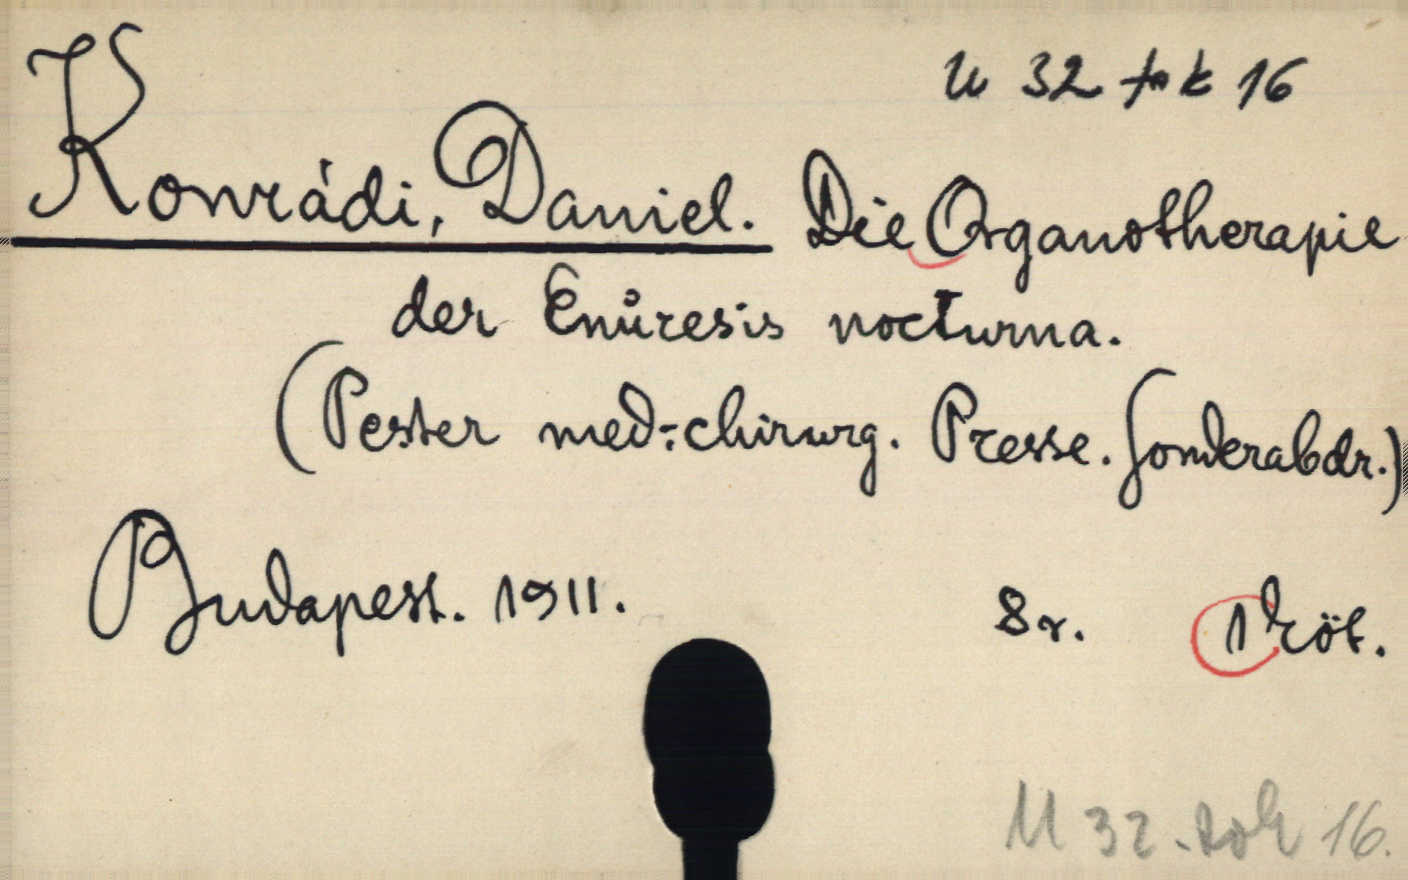 U 32 tok 16
Konrádi, Daniel. Die Organotherapie
der Enuresis nocturna.
(Pester med.-chirurg. Presse. Sonderabdr.)
Budapest. 1911. 8r. 1 köt.
U 32. tok 16.